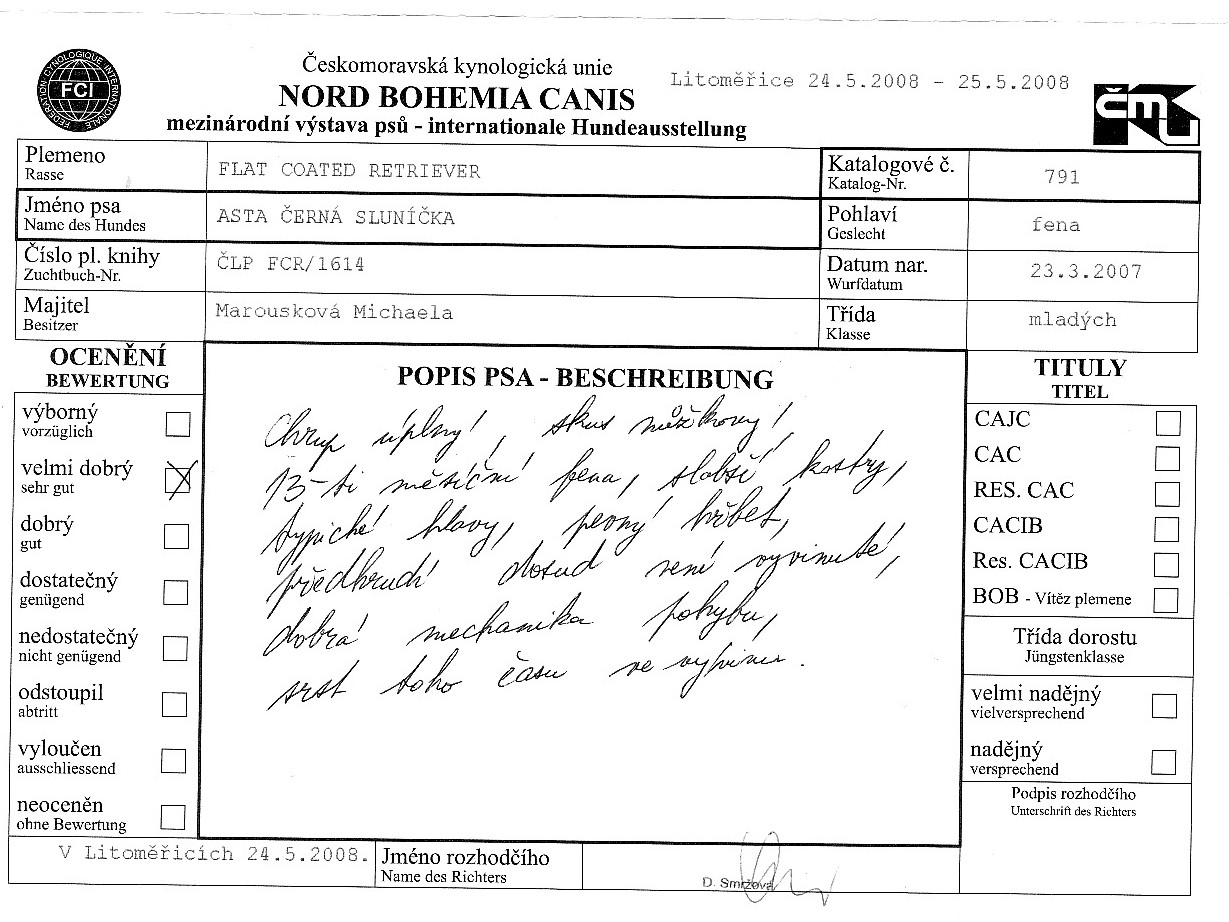 FEDERATION CYNOLOGIQUE INTERNATIONALE
FCI
Českomoravská kynologická unie
NORD BOHEMIA CANIS
mezinárodní výstava psů - internationale Hundeausstellung
Litoměřice 24.5.2008 - 25.5.2008
čmku
Plemeno
Rasse
FLAT COATED RETRIEVER
Katalogové č.
Katalog-Nr.
791
Jméno psa
Name des Hundes
ASTA ČERNÁ SLUNÍČKA
Pohlaví
Geslecht
fena
Číslo pl. knihy
Zuchtbuch-Nr.
ČLP FCR/1614
Datum nar.
Wurfdatum
23.3.2007
Majitel
Besitzer
Marousková Michaela
Třída
Klasse
mladých
OCENĚNÍ
BEWERTUNG
výborný
vorzüglich
velmi dobrý
sehr gut
dobrý
gut
dostatečný
genügend
nedostatečný
nicht genügend
odstoupil
abtritt
vyloučen
ausschliessend
neoceněn
ohne Bewertung
POPIS PSA - BESCHREIBUNG
Chrup úplný, skus nůžkový,
13-ti měsíční fena, slabší kostry,
typické hlavy, pevný hřbet,
předhrudí dosud není vyvinuté,
dobrá mechanika pohybu,
srst toho času ve vývinu.
TITULY
TITEL
CAJC
CAC
RES. CAC
CACIB
Res. CACIB
BOB - Vítěz plemene
Třída dorostu
Jüngstenklasse
velmi nadějný
vielversprechend
nadějný
versprechend
Podpis rozhodčího
Unterschrift des Richters
V Litoměřicích 24.5.2008.
Jméno rozhodčího
Name des Richters
D. Smržová